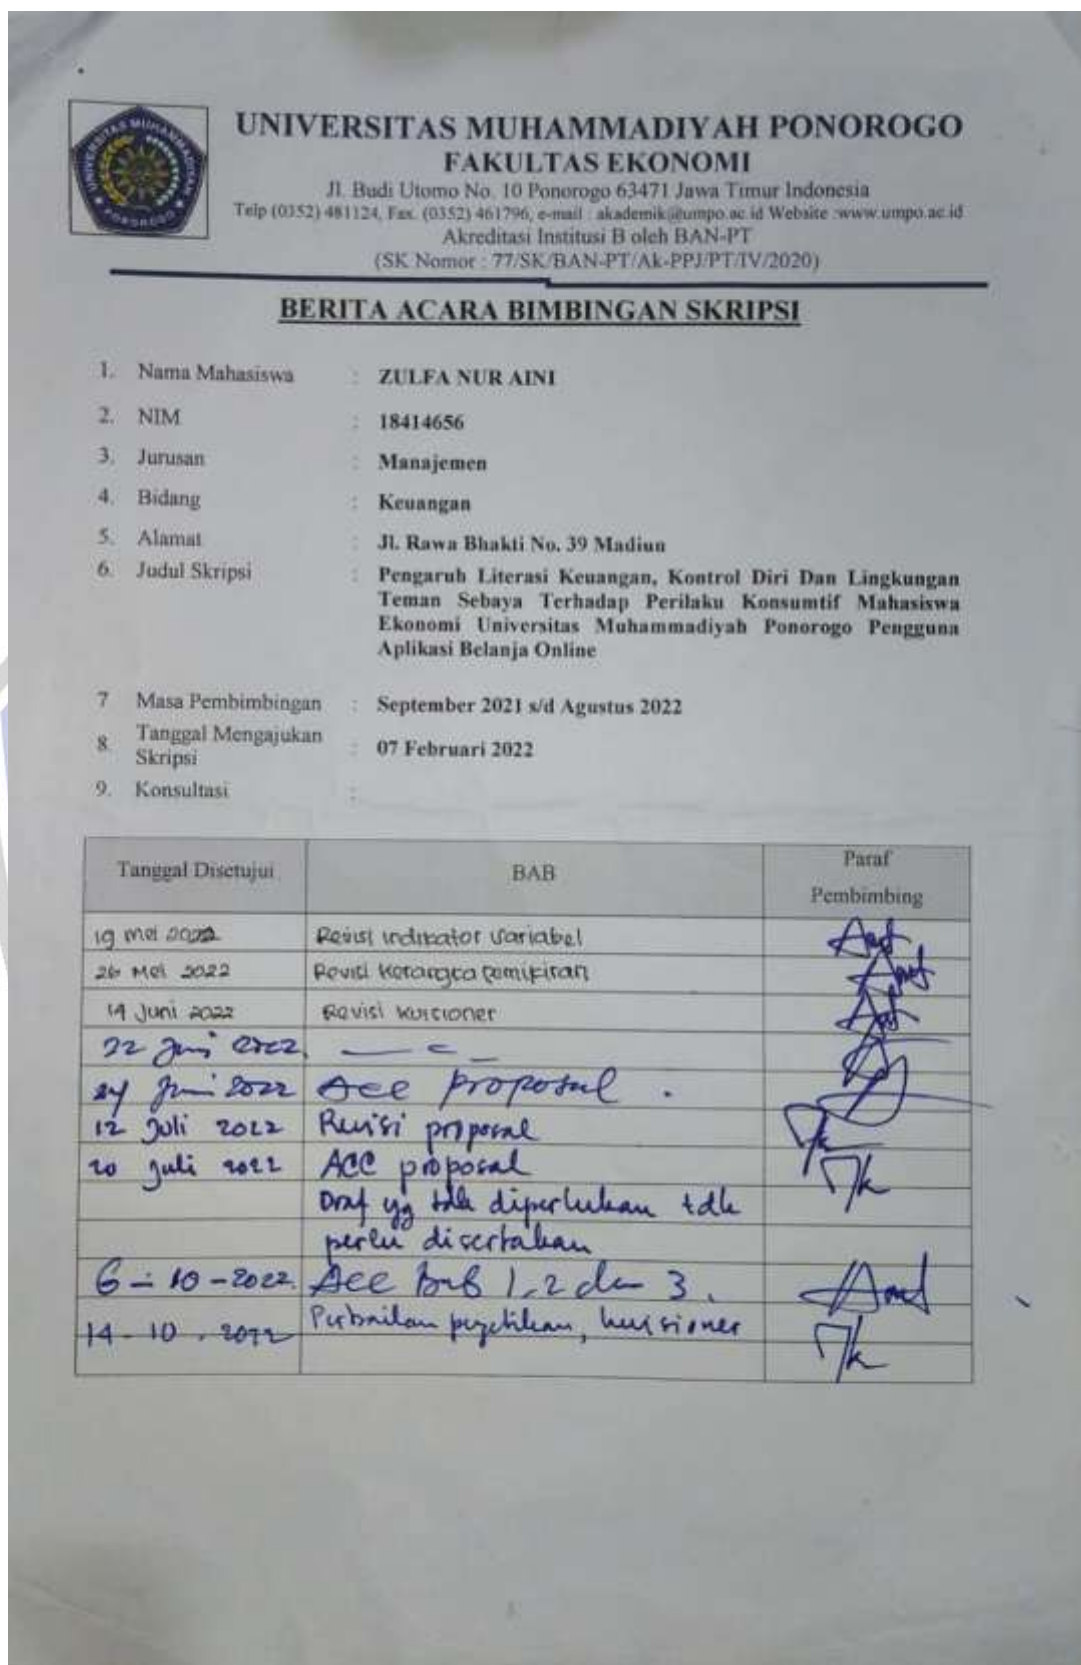 UNIVERSITAS MUHAMMADIYAH PONOROGO
UNIVERSITAS MUHAMMADIYAH PONOROGO
FAKULTAS EKONOMI
Jl. Budi Utomo No. 10 Ponorogo 63471 Jawa Timur Indonesia
Telp (0352) 481124, Fax. (0352) 461796, e-mail : akademik@umpo.ac.id Website :www.umpo.ac.id
Akreditasi Institusi B oleh BAN-PT
(SK Nomor : 77/SK/BAN-PT/Ak-PPJ/PT/IV/2020)
BERITA ACARA BIMBINGAN SKRIPSI
1. Nama Mahasiswa : ZULFA NUR AINI
2. NIM : 18414656
3. Jurusan : Manajemen
4. Bidang : Keuangan
5. Alamat : Jl. Rawa Bhakti No. 39 Madiun
6. Judul Skripsi : Pengaruh Literasi Keuangan, Kontrol Diri Dan Lingkungan
Teman Sebaya Terhadap Perilaku Konsumtif Mahasiswa
Ekonomi Universitas Muhammadiyah Ponorogo Pengguna
Aplikasi Belanja Online
7 Masa Pembimbingan : September 2021 s/d Agustus 2022
8. Tanggal Mengajukan Skripsi : 07 Februari 2022
9. Konsultasi :
Tanggal Disetujui BAB Paraf Pembimbing
19 mei 2022 Revisi indikator variabel
26 Mei 2022 Revisi kerangka pemikiran
14 Juni 2022 Revisi kuisioner
22 Juni 2022
24 Juni 2022 Acc proposal .
12 Juli 2022 Revisi proposal
20 Juli 2022 ACC proposal
Draf yg tdk diperlukan tdk
perlu disertakan
6 - 10 - 2022. Acc Bab 1, 2 dan 3.
14 - 10 . 2022 Perbaikan pengetikan, kuisioner